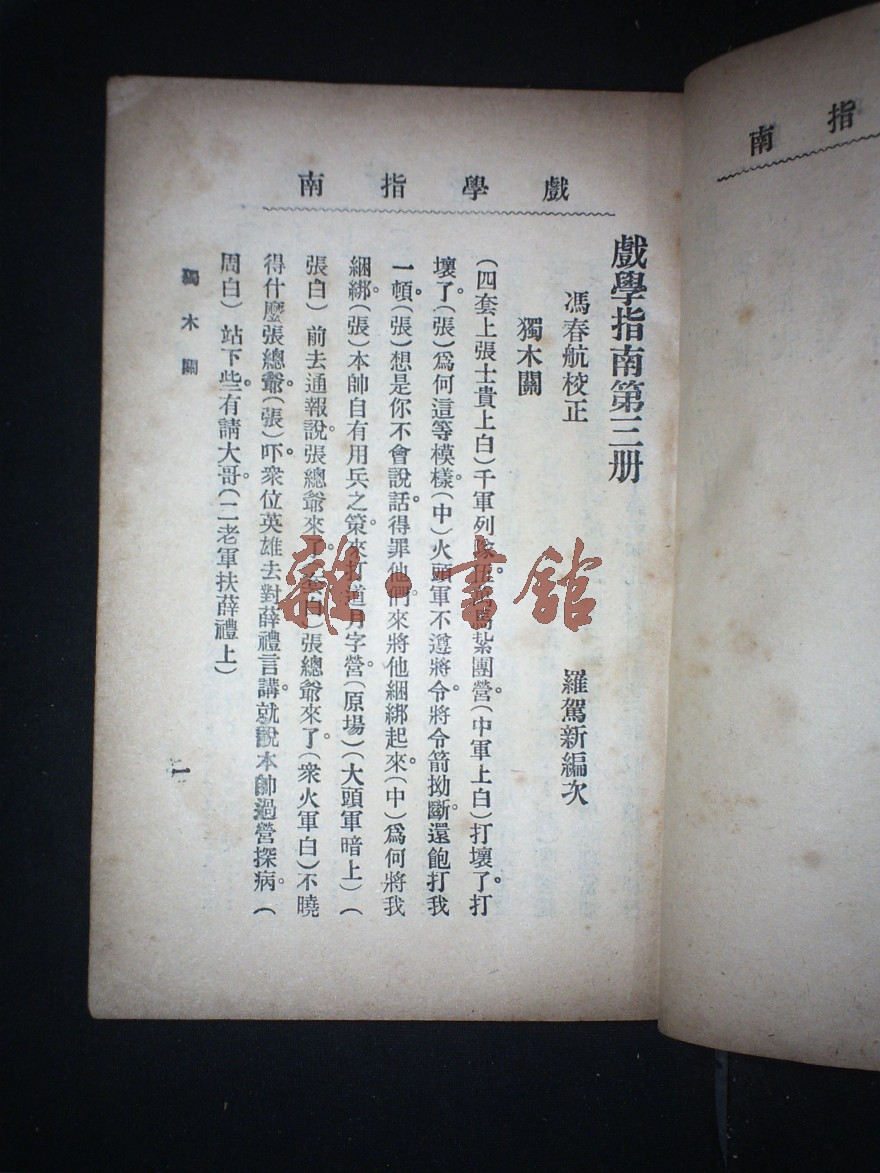 戲學指南
戲學指南第三册
馮春航校正 羅駕新編次
獨木關
(四套上張士貴上白)千軍列 紮團營(中軍上白)打壞了。打
壞了(張)爲何這等模樣(中)火頭軍不遵將令。將令箭拗斷。還飽打我
一頓。(張)想是你不會說話。得罪他們。來將他綑綁起來。(中)爲何將我
綑綁。(張)本帥自有用兵之策。來打道月字營(原場)(大頭軍暗上)(
張白)前去通報。說張總爺來了 白)張總爺來了(衆火軍白)不曉
得什麼張總爺。(張)吓衆位英雄去對薛禮言講。就說本帥過營探病。(
周白)站下些。有請大哥。(二老軍扶薛禮上)
獨木關
一
指南
雜·書館